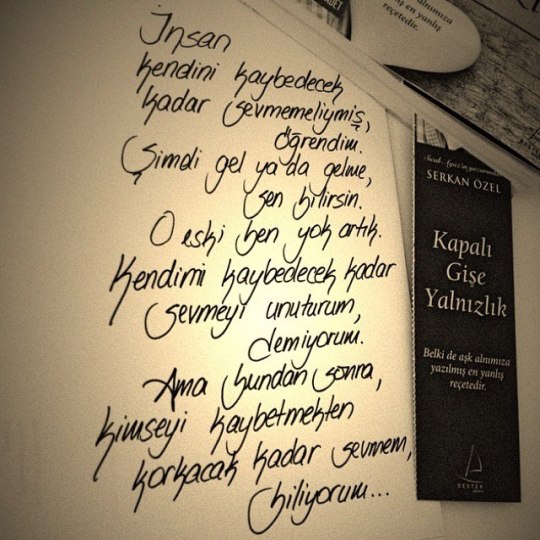 İnsan
kendini kaybedecek
kadar sevmemeliymiş,
öğrendim.
Şimdi gel ya da gelme,
sen bilirsin.
O eski ben yok artık.
Kendimi kaybedecek kadar
sevmeyi unuturum,
demiyorum.
Ama bundan sonra,
kimseyi kaybetmekten
korkacak kadar sevmem,
biliyorum...
SERKAN ÖZEL
Kapalı
Gişe
Yalnızlık
Belki de aşk alnımıza
yazılmış en yanlış
reçetedir.
DESTEK
alnımıza
en yanlış
reçetedir.